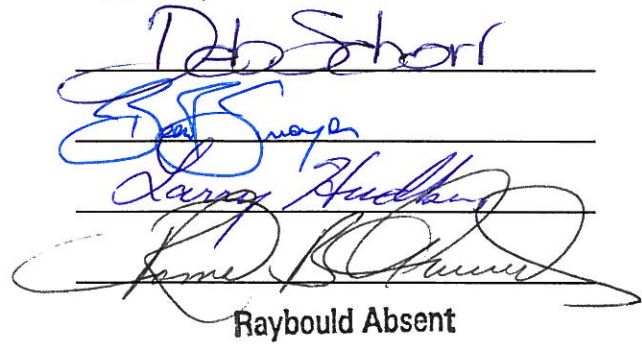 Deb Schorr
Smoyer
Larry Hudkins
B
Raybould Absent